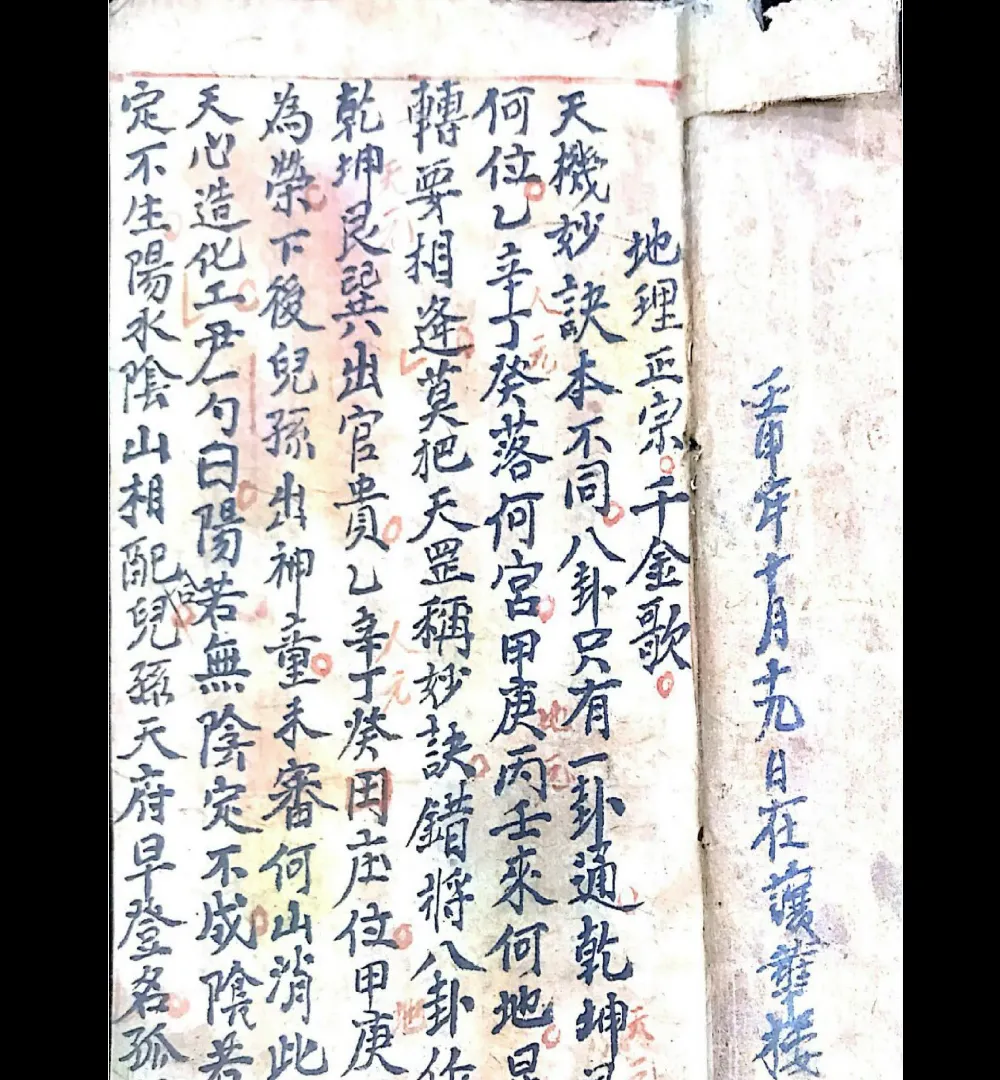 壬申年十月十九日在護華楼
地理正宗。千金歌。
天機妙訣本不同。八卦只有一卦通乾坤艮
何位。乙辛丁癸落何宮。甲庚丙壬來何地。星
轉要相逢莫把天罡稱妙訣。錯將八卦作
乾坤艮巽出官貴。乙辛丁癸田庄位。甲庚
為榮下後兒孫出神童。未審何山消此
天心造化工尹一勺曰陽若無陰定不成。陰若
定不生陽水陰山相配合。兒孫天府早登名。孤
天元
人元
地元
天元
人元
地